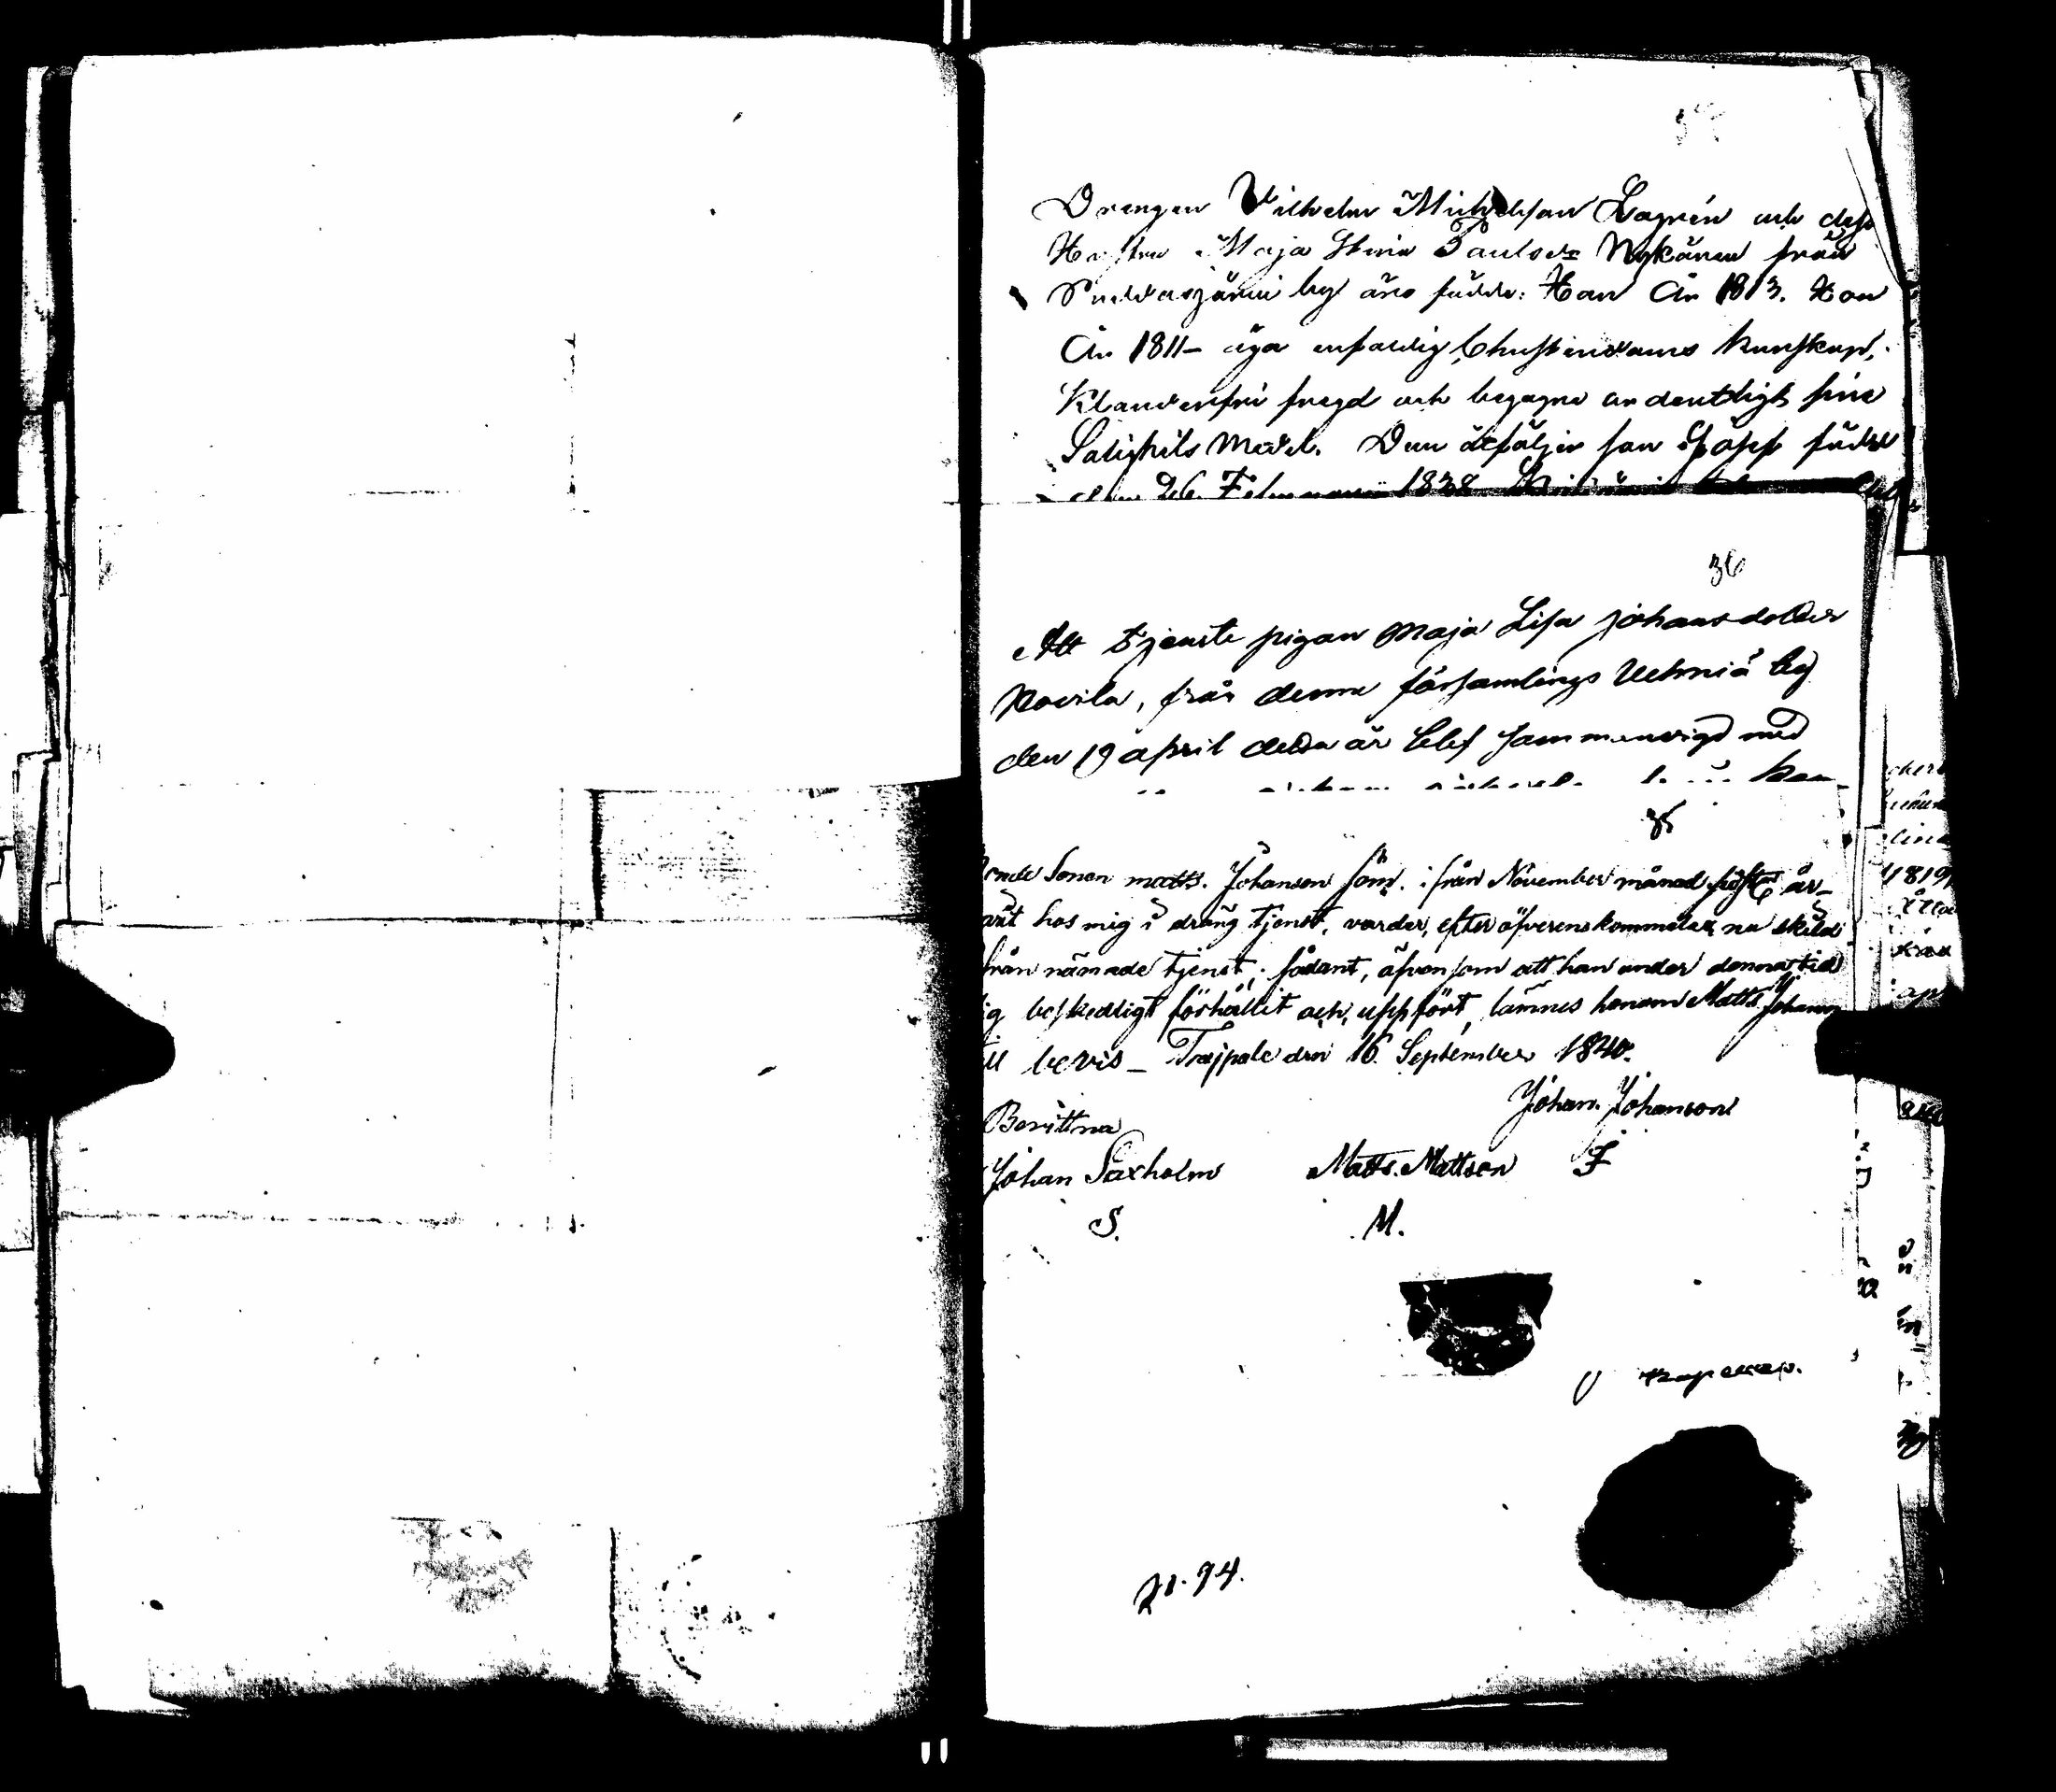 Drengen Vilhelm Michelsson Lagrén och dess
Hustru Maja Stina Paulsdr Nykänen från
by äro födde: Han År 1813. Hon
År 1811 – äga enfaldig Christendoms kunskap,
Klanderfri fregd och begagna ordentligt sine
Salighets Medel. Dem åtföljer son Staff född
den 26. Februarii 1838
36
Att tjenste pigan Maja Lisa Johansdotter
från denna församlings Vehniä by
den 19 april detta år blef sammanvigd med
35
Sonen Matts. Johanson som. ifrån November månad år
hos mig i dräng tjenst, varder, efter öfverenskommelse nu skild
från nämnde tjenst; sådant, äfvensom att han under denna tid
ig beskedligt förhållit och uppfört, lämnas honom Matts Johans
ll bevis – Traipale den 16. September 1840.
Johan. Johanson
Bevittna
Johan Saxholm Matts. Mattson F
S. M.
21.94.